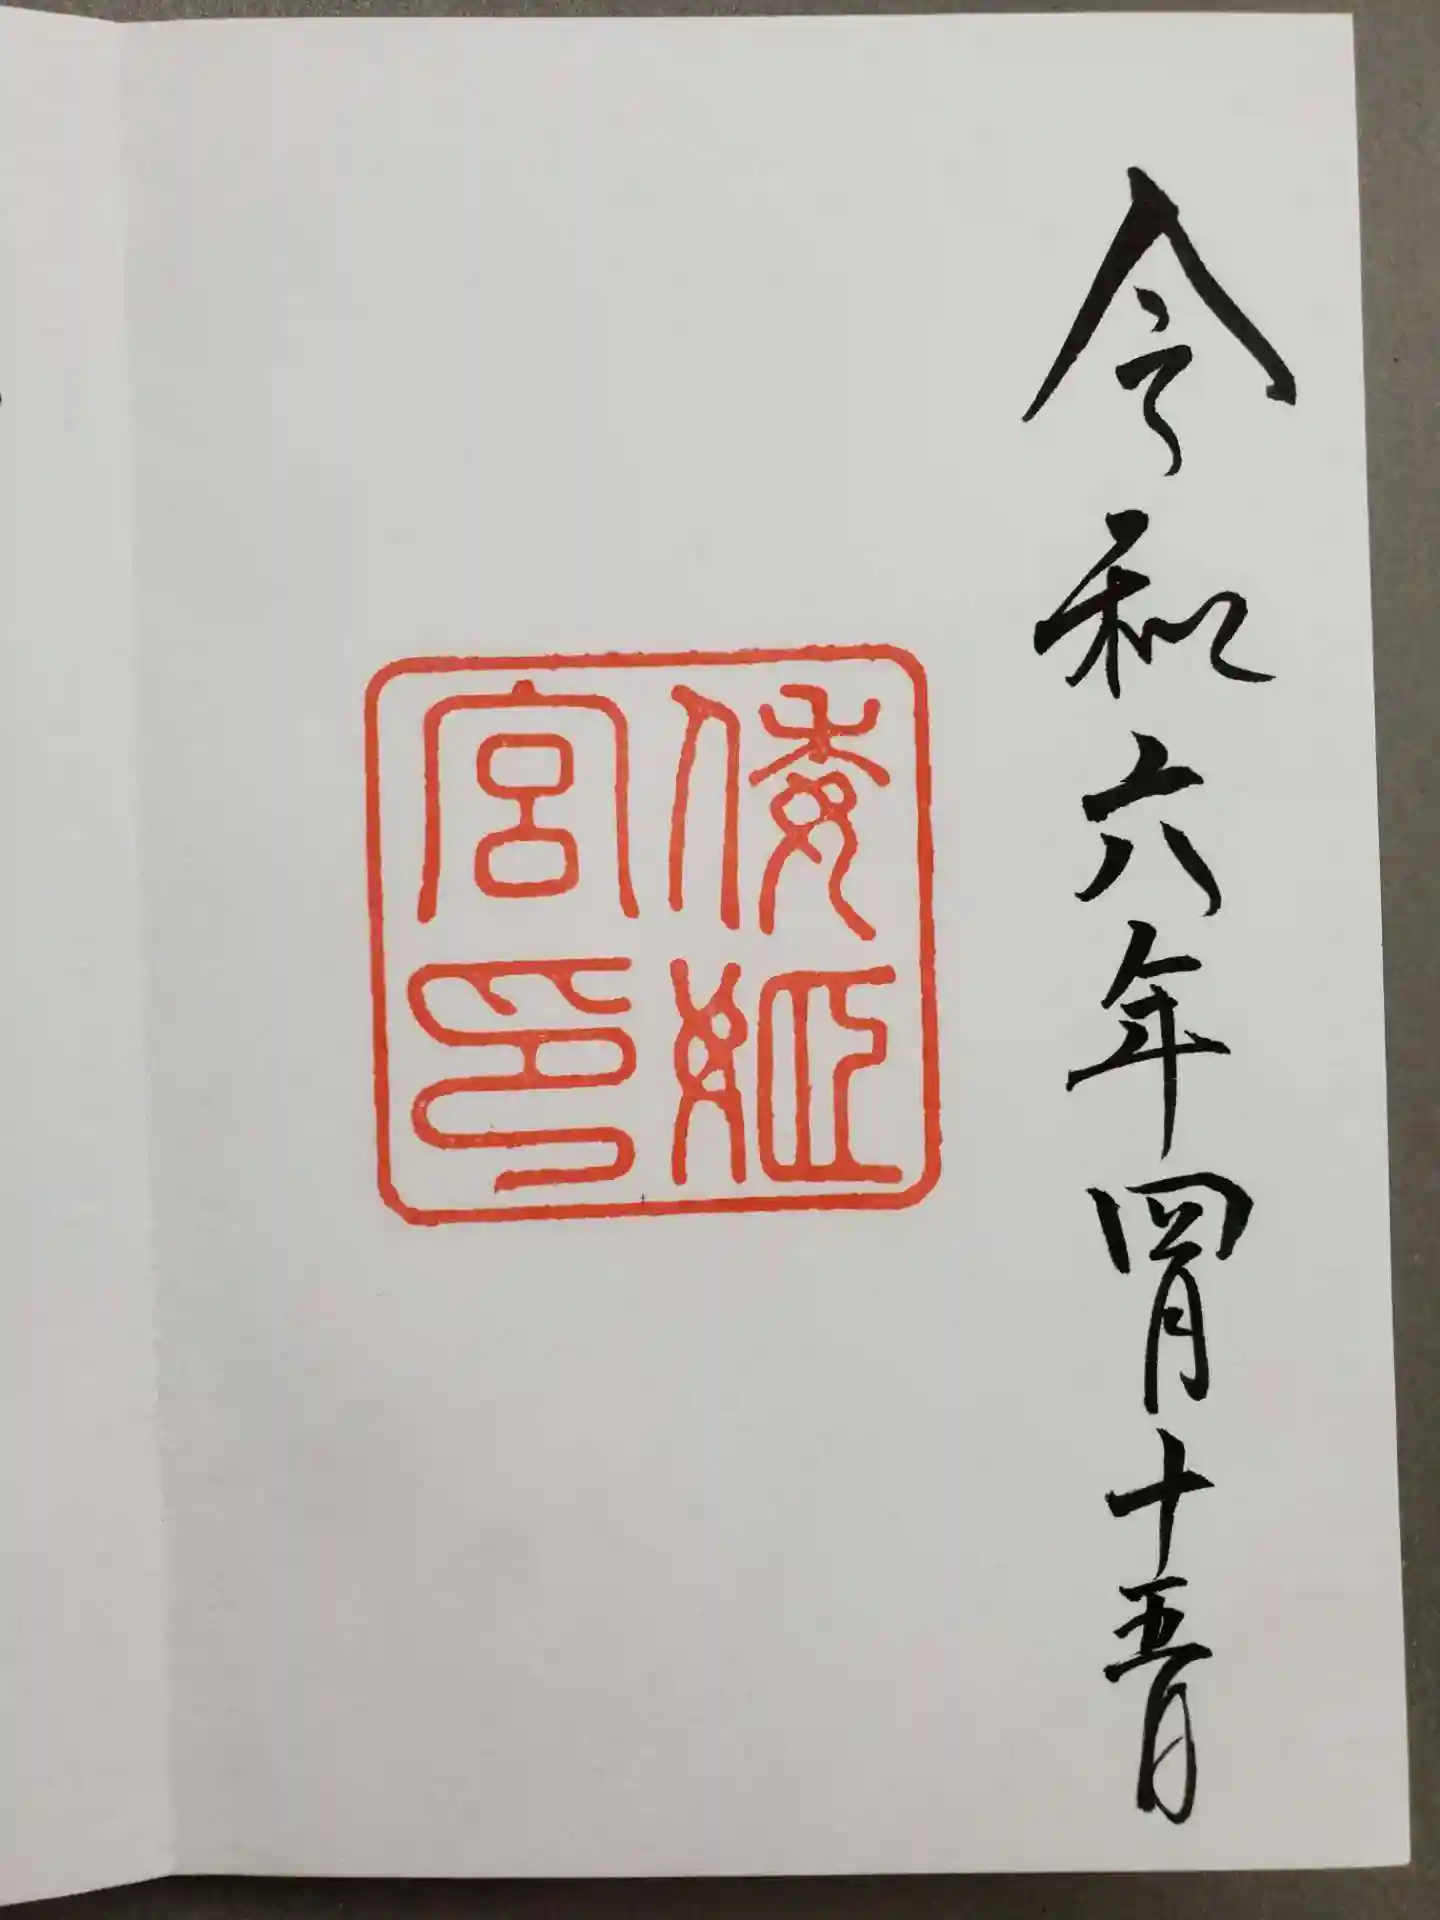 令和六年四月十五日
倭姫
宮印